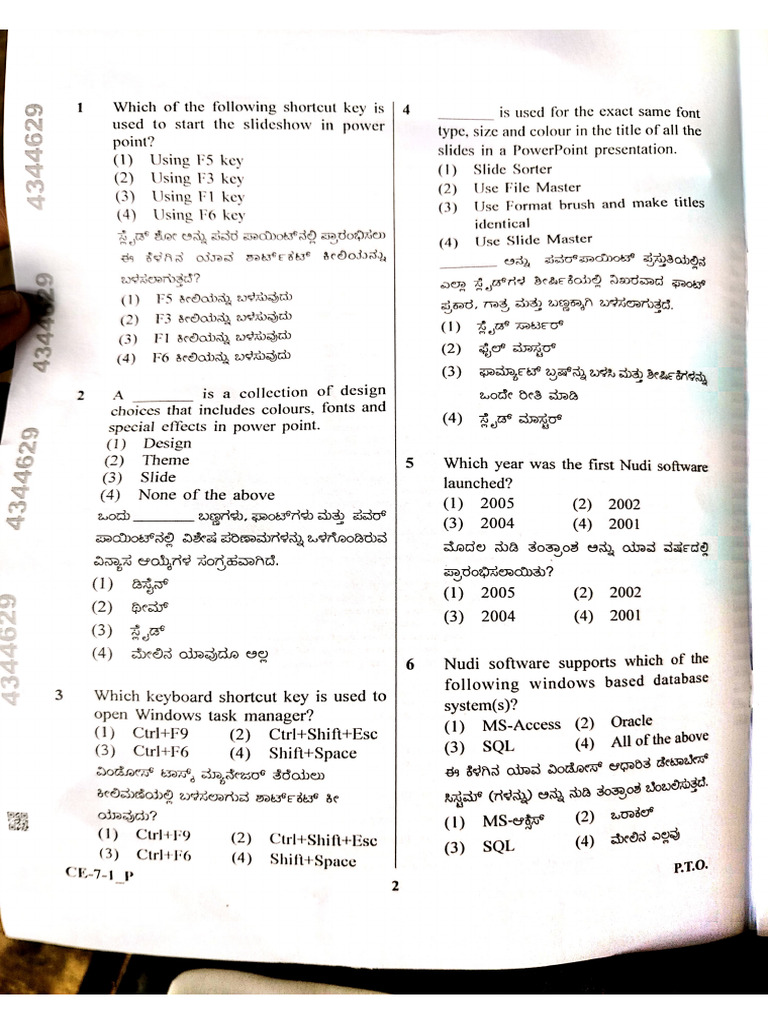 4344629
4344629
4344629
4344629
1 Which of the following shortcut key is
used to start the slideshow in power
point?
(1) Using F5 key
(2) Using F3 key
(3) Using F1 key
(4) Using F6 key
ಸ್ಲೈಡ್ ಶೋ ಅನ್ನು ಪವರ ಪಾಯಿಂಟ್‌ನಲ್ಲಿ ಪ್ರಾರಂಭಿಸಲು
ಈ ಕೆಳಗಿನ ಯಾವ ಶಾರ್ಟ್‌ಕಟ್ ಕೀಲಿಯನ್ನು
ಬಳಸಲಾಗುತ್ತದೆ?
(1) F5 ಕೀಲಿಯನ್ನು ಬಳಸುವುದು
(2) F3 ಕೀಲಿಯನ್ನು ಬಳಸುವುದು
(3) F1 ಕೀಲಿಯನ್ನು ಬಳಸುವುದು
(4) F6 ಕೀಲಿಯನ್ನು ಬಳಸುವುದು
2 A ________ is a collection of design
choices that includes colours, fonts and
special effects in power point.
(1) Design
(2) Theme
(3) Slide
(4) None of the above
ಒಂದು ________ ಬಣ್ಣಗಳು, ಫಾಂಟ್‌ಗಳು ಮತ್ತು ಪವರ್
ಪಾಯಿಂಟ್‌ನಲ್ಲಿ ವಿಶೇಷ ಪರಿಣಾಮಗಳನ್ನು ಒಳಗೊಂಡಿರುವ
ವಿನ್ಯಾಸ ಆಯ್ಕೆಗಳ ಸಂಗ್ರಹವಾಗಿದೆ.
(1) ಡಿಸೈನ್
(2) ಥೀಮ್
(3) ಸ್ಲೈಡ್
(4) ಮೇಲಿನ ಯಾವುದೂ ಅಲ್ಲ
3 Which keyboard shortcut key is used to
open Windows task manager?
(1) Ctrl+F9 (2) Ctrl+Shift+Esc
(3) Ctrl+F6 (4) Shift+Space
ವಿಂಡೋಸ್ ಟಾಸ್ಕ್ ಮ್ಯಾನೇಜರ್ ತೆರೆಯಲು
ಕೀಲಿಮಣಿಯಲ್ಲಿ ಬಳಸಲಾಗುವ ಶಾರ್ಟ್‌ಕಟ್ ಕೀ
ಯಾವುದು?
(1) Ctrl+F9 (2) Ctrl+Shift+Esc
(3) Ctrl+F6 (4) Shift+Space
CE-7-1_P
4 ________ is used for the exact same font
type, size and colour in the title of all the
slides in a PowerPoint presentation.
(1) Slide Sorter
(2) Use File Master
(3) Use Format brush and make titles
identical
(4) Use Slide Master
________ ಅನ್ನು ಪವರ್‌ಪಾಯಿಂಟ್ ಪ್ರಸ್ತುತಿಯಲ್ಲಿನ
ಎಲ್ಲಾ ಸ್ಲೈಡ್‌ಗಳ ಶೀರ್ಷಿಕೆಯಲ್ಲಿ ನಿಖರವಾದ ಫಾಂಟ್
ಪ್ರಕಾರ, ಗಾತ್ರ ಮತ್ತು ಬಣ್ಣಕ್ಕಾಗಿ ಬಳಸಲಾಗುತ್ತದೆ.
(1) ಸ್ಲೈಡ್ ಸಾರ್ಟರ್
(2) ಫೈಲ್ ಮಾಸ್ಟರ್
(3) ಫಾರ್ಮ್ಯಾಟ್ ಬ್ರಷ್‌ನ್ನು ಬಳಸಿ ಮತ್ತು ಶೀರ್ಷಿಕೆಗಳನ್ನು
ಒಂದೇ ರೀತಿ ಮಾಡಿ
(4) ಸ್ಲೈಡ್ ಮಾಸ್ಟರ್
5 Which year was the first Nudi software
launched?
(1) 2005 (2) 2002
(3) 2004 (4) 2001
ಮೊದಲ ನುಡಿ ತಂತ್ರಾಂಶ ಅನ್ನು ಯಾವ ವರ್ಷದಲ್ಲಿ
ಪ್ರಾರಂಭಿಸಲಾಯಿತು?
(1) 2005 (2) 2002
(3) 2004 (4) 2001
6 Nudi software supports which of the
following windows based database
system(s)?
(1) MS-Access (2) Oracle
(3) SQL (4) All of the above
ಈ ಕೆಳಗಿನ ಯಾವ ವಿಂಡೋಸ್ ಆಧಾರಿತ ಡೇಟಾಬೇಸ್
ಸಿಸ್ಟಮ್ (ಗಳನ್ನು) ಅನ್ನು ನುಡಿ ತಂತ್ರಾಂಶ ಬೆಂಬಲಿಸುತ್ತದೆ.
(1) MS-ಆಕ್ಸೆಸ್ (2) ಒರಾಕಲ್
(3) SQL (4) ಮೇಲಿನ ಎಲ್ಲವು
P.T.O.
2